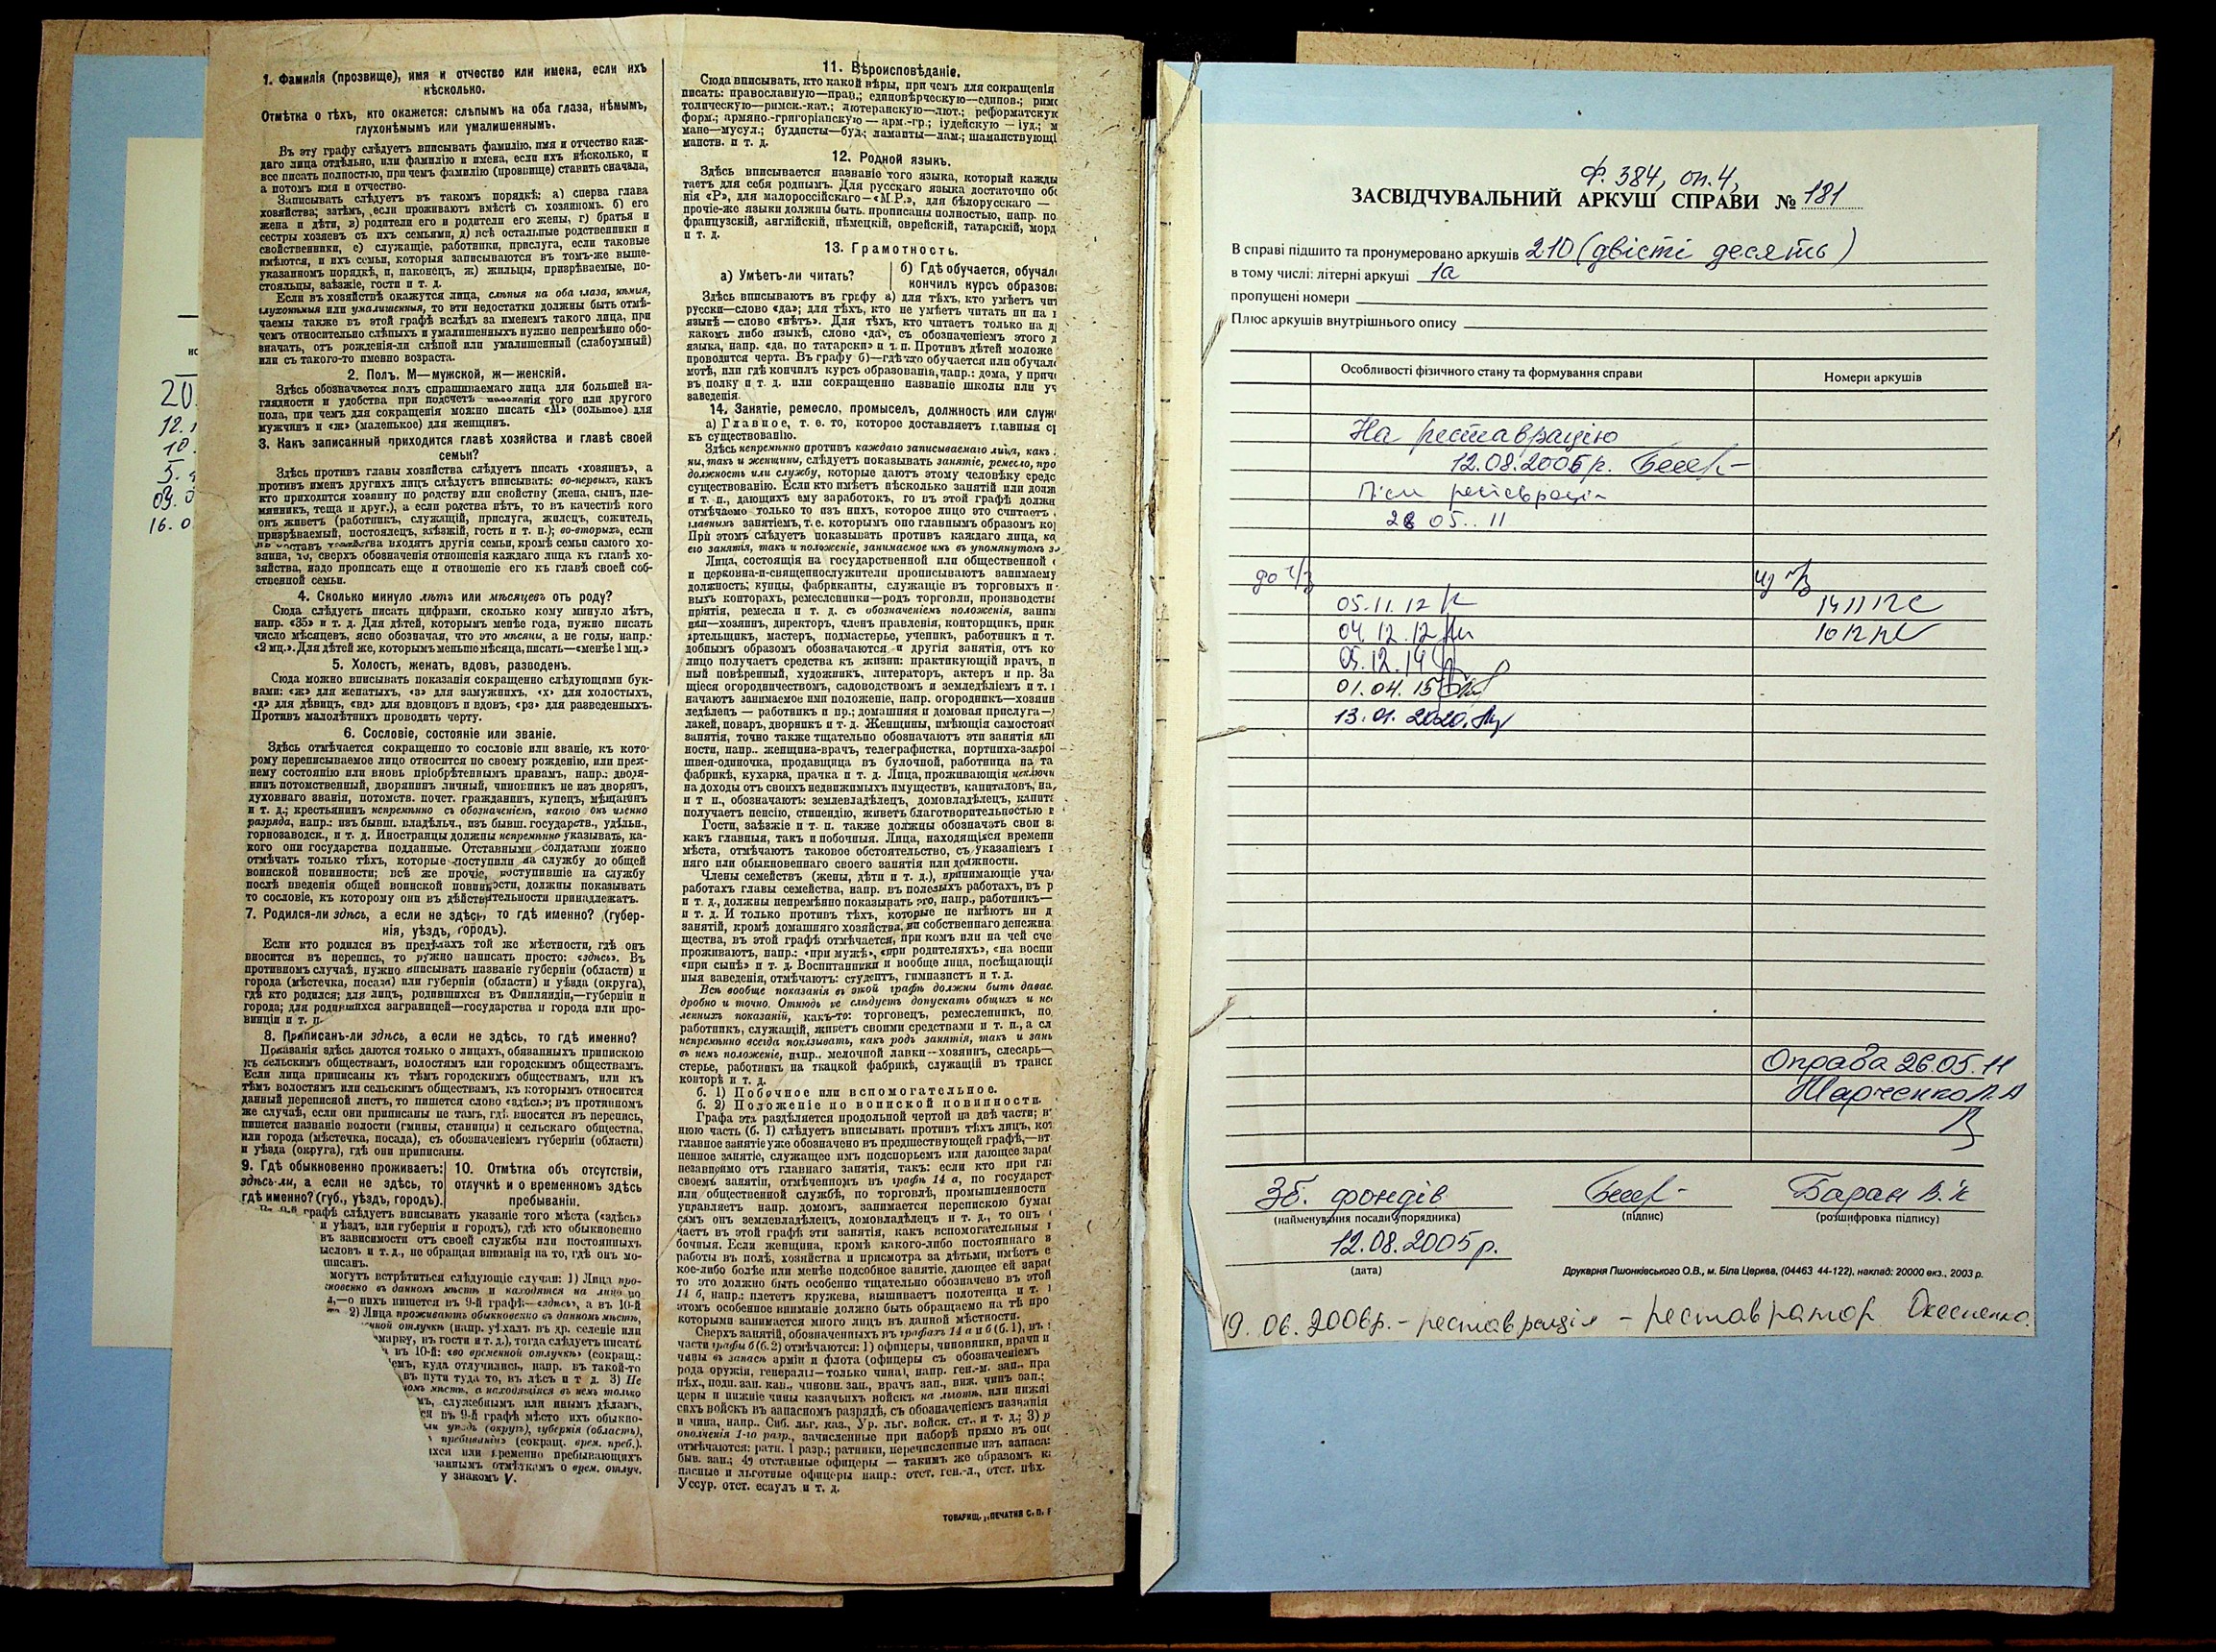 1. Фамилія (прозвище), имя и отчество или имена, если ихъ
нѣсколько.
Отмѣтка о тѣхъ, кто окажется: слѣпымъ на оба глаза, нѣмымъ,
глухонѣмымъ или умалишеннымъ.
Въ эту графу слѣдуетъ вписывать фамилію, имя и отчество каж-
даго лица отдѣльно, или фамилію и имена, если ихъ нѣсколько, и
все писать полностью, при чемъ фамилію (прозвище) ставить сначала,
а потомъ имя и отчество.
Записывать слѣдуетъ въ такомъ порядкѣ: а) сперва глава
хозяйства; затѣмъ, если проживаютъ вмѣстѣ съ хозяиномъ. б) его
жена и дѣти, в) родители его и родители его жены, г) братья и
сестры хозяевъ съ ихъ семьями, д) всѣ остальные родственники и
свойственники, е) служащіе, работники, прислуга, если таковые
имѣются, и ихъ семьи, которыя записываются въ томъ-же выше-
указанномъ порядкѣ, и, наконецъ, ж) жильцы, призрѣваемые, по-
стояльцы, заѣзжіе, гости и т. д.
Если въ хозяйствѣ окажутся лица, слѣпыя на оба глаза, нѣмыя,
глухонѣмыя или умалишенныя, то эти недостатки должны быть отмѣ-
чаемы также въ этой графѣ вслѣдъ за именемъ такого лица, при
чемъ относительно слѣпыхъ и умалишенныхъ нужно непремѣнно обо-
значать, отъ рожденія-ли слѣпой или умалишенный (слабоумный)
или съ такого-то именно возраста.
2. Полъ. М—мужской, ж—женскій.
Здѣсь обозначается полъ спрашиваемаго лица для большей на-
глядности и удобства при подсчетъ населенія того или другого
пола, при чемъ для сокращенія можно писать «М» (большое) для
мужчинъ и «ж» (маленькое) для женщинъ.
3. Какъ записанный приходится главѣ хозяйства и главѣ своей
семьи?
Здѣсь противъ главы хозяйства слѣдуетъ писать «хозяинъ», а
противъ именъ другихъ лицъ слѣдуетъ вписывать: во-первыхъ, какъ
кто приходится хозяину по родству или свойству (жена, сынъ, пле-
мянникъ, теща и друг.), а если родства нѣтъ, то въ качествѣ кого
онъ живетъ (работникъ, служащій, прислуга, жилецъ, сожитель,
призрѣваемый, постоялецъ, заѣзжій, гость и т. п.); во-вторыхъ, если
въ составъ хозяйства входятъ другія семьи, кромѣ семьи самого хо-
зяина, то, сверхъ обозначенія отношенія каждаго лица къ главѣ хо-
зяйства, надо прописать еще и отношеніе его къ главѣ своей соб-
ственной семьи.
4. Сколько минуло лѣтъ или мѣсяцевъ отъ роду?
Сюда слѣдуетъ писать цифрами, сколько кому минуло лѣтъ,
напр. «35» и т. д. Для дѣтей, которымъ менѣе года, нужно писать
число мѣсяцевъ, ясно обозначая, что это мѣсяцы, а не годы, напр.:
«2 мц.». Для дѣтей же, которымъ меньше мѣсяца, писать—«менѣе 1 мц.»
5. Холостъ, женатъ, вдовъ, разведенъ.
Сюда можно вписывать показанія сокращенно слѣдующими бук-
вами: «ж» для женатыхъ, «з» для замужнихъ, «х» для холостыхъ,
«д» для дѣвицъ, «вд» для вдовцовъ и вдовъ, «рз» для разведенныхъ.
Противъ малолѣтнихъ проводить черту.
6. Сословіе, состояніе или званіе.
Здѣсь отмѣчается сокращенно то сословіе или званіе, къ кото-
рому переписываемое лицо относится по своему рожденію, или преж-
нему состоянію или вновь пріобрѣтеннымъ правамъ, напр.: дворя-
нинъ потомственный, дворянинъ личный, чиновникъ не изъ дворянъ,
духовнаго званія, потомств. почет. гражданинъ, купецъ, мѣщанинъ
и т. д.; крестьянинъ непремѣнно съ обозначеніемъ, какого онъ именно
разряда, напр.: изъ бывш. владѣльч., изъ бывш. государств., удѣльн.,
горнозаводск., и т. д. Иностранцы должны непремѣнно указывать, ка-
кого они государства подданные. Отставными солдатами можно
отмѣчать только тѣхъ, которые поступили на службу до общей
воинской повинности; всѣ же прочіе, поступившіе на службу
послѣ введенія общей воинской повинности, должны показывать
то сословіе, къ которому они въ дѣйствительности принадлежатъ.
7. Родился-ли здѣсь, а если не здѣсь, то гдѣ именно? (губер-
нія, уѣздъ, городъ).
Если кто родился въ предѣлахъ той же мѣстности, гдѣ онъ
вносится въ перепись, то нужно написать просто: «здѣсь». Въ
противномъ случаѣ, нужно вписывать названіе губерніи (области) и
города (мѣстечка, посада) или губерніи (области) и уѣзда (округа),
гдѣ кто родился; для лицъ, родившихся въ Финляндіи,—губерніи и
города; для родившихся заграницей—государства и города или про-
винціи и т. п.
8. Приписанъ-ли здѣсь, а если не здѣсь, то гдѣ именно?
Показанія здѣсь даются только о лицахъ, обязанныхъ припискою
къ сельскимъ обществамъ, волостямъ или городскимъ обществамъ.
Если лица приписаны къ тѣмъ городскимъ обществамъ, или къ
тѣмъ волостямъ или сельскимъ обществамъ, къ которымъ относится
данный переписной листъ, то пишется слово «здѣсь»; въ противномъ
же случаѣ, если они приписаны не тамъ, гдѣ вносятся въ перепись,
пишется названіе волости (гмины, станицы) и сельскаго общества,
или города (мѣстечка, посада), съ обозначеніемъ губерніи (области)
и уѣзда (округа), гдѣ они приписаны.
9. Гдѣ обыкновенно проживаетъ:
здѣсь-ли, а если не здѣсь, то
гдѣ именно? (губ., уѣздъ, городъ).
10. Отмѣтка объ отсутствіи,
отлучкѣ и о временномъ здѣсь
пребываніи.
графѣ слѣдуетъ вписывать указаніе того мѣста («здѣсь»
и уѣздъ, или губернія и городъ), гдѣ кто обыкновенно
въ зависимости отъ своей службы или постоянныхъ
ысловъ и т. д., не обращая вниманія на то, гдѣ онъ мо-
писанъ.
могутъ встрѣтиться слѣдующіе случаи: 1) Лица про-
новенно въ данномъ мѣстѣ и находятся на лицо по
—о нихъ пишется въ 9-й графѣ—«здѣсь», а въ 10-й
2) Лица проживаютъ обыкновенно въ данномъ мѣстѣ,
нной отлучкѣ (напр. уѣхалъ въ др. селеніе или
марку, въ гости и т. д.), тогда слѣдуетъ писать
въ 10-й: «во временной отлучкѣ» (сокращ.:
емъ, куда отлучились, напр. въ такой-то
въ пути туда то, въ лѣсъ и т д. 3) Не
номъ мѣстѣ, а находящіяся въ немъ только
мъ, служебнымъ или инымъ дѣламъ,
ся въ 9-й графѣ мѣсто ихъ обыкно-
уѣздъ (округъ), губернія (область),
пребываніи» (сокращ. врем. преб.).
хся или временно пребывающихъ
заннымъ отмѣткамъ о врем. отлуч.
у знакомъ V.
11. Вѣроисповѣданіе.
Сюда вписывать, кто какой вѣры, при чемъ для сокращенія
писать: православную—прав.; единовѣрческую—единов.; рим
толическую—римск.-кат.; лютеранскую—лют.; реформатскую
форм.; армяно-григоріанскую — арм.-гр.; іудейскую — іуд.; м
мане—мусул.; буддисты—буд.; ламаиты—лам.; шаманствующі
манств. и т. д.
12. Родной языкъ.
Здѣсь вписывается названіе того языка, который кажды
таетъ для себя роднымъ. Для русскаго языка достаточно обо
нія «Р», для малороссійскаго—«М.Р.», для бѣлорусскаго —
прочіе-же языки должны быть прописаны полностью, напр. по
французскій, англійскій, нѣмецкій, еврейскій, татарскій, морд
и т. д.
13. Грамотность.
а) Умѣетъ-ли читать?
б) Гдѣ обучается, обучал
кончилъ курсъ образов
Здѣсь вписываютъ въ графу а) для тѣхъ, кто умѣетъ чит
русски—слово «да»; для тѣхъ, кто не умѣетъ читать ни на
языкѣ — слово «нѣтъ». Для тѣхъ, кто читаетъ только на д
какомъ либо языкѣ, слово «да», съ обозначеніемъ этого
языка, напр. «да, по татарски» и т. п. Противъ дѣтей моложе
проводится черта. Въ графу б)—гдѣ кто обучается или обучал
мотѣ, или гдѣ кончилъ курсъ образованія, напр.: дома, у прич
въ полку и т. д. или сокращенно названіе школы или уч
заведенія.
14. Занятіе, ремесло, промыселъ, должность или служ
а) Главное, т. е. то, которое доставляетъ главныя ср
къ существованію.
Здѣсь непремѣнно противъ каждаго записываемаго лица, какъ
ны, такъ и женщины, слѣдуетъ показывать занятіе, ремесло, про
должность или службу, которые даютъ этому человѣку средс
существованію. Если кто имѣетъ нѣсколько занятій или долж
и т. п., дающихъ ему заработокъ, то въ этой графѣ должн
отмѣчаемо только то изъ нихъ, которое лицо это считаетъ
главнымъ занятіемъ, т. е. которымъ оно главнымъ образомъ ко
При этомъ слѣдуетъ показывать противъ каждаго лица, ка
его занятія, такъ и положеніе, занимаемое имъ въ упомянутомъ з
Лица, состоящія на государственной или общественной
и церковно-и-священнослужители прописываютъ занимаему
должность; купцы, фабриканты, служащіе въ торговыхъ и
выхъ конторахъ, ремесленники—родъ торговли, производства
пріятія, ремесла и т. д. съ обозначеніемъ положенія, заним
ими—хозяинъ, директоръ, членъ правленія, конторщикъ, прик
артельщикъ, мастеръ, подмастерье, ученикъ, работникъ и т.
добнымъ образомъ обозначаются и другія занятія, отъ ко
лицо получаетъ средства къ жизни: практикующій врачъ, п
ный повѣренный, художникъ, литераторъ, актеръ и пр. За
щіеся огородничествомъ, садоводствомъ и земледѣліемъ и т.
начаютъ занимаемое ими положеніе, напр. огородникъ—хозяин
ледѣлецъ — работникъ и пр.; домашняя и домовая прислуга—
лакей, поваръ, дворникъ и т. д. Женщины, имѣющія самостоят
занятія, точно также тщательно обозначаютъ эти занятія или
ности, напр.. женщина-врачъ, телеграфистка, портниха-закрой
швея-одиночка, продавщица въ булочной, работница на та
фабрикѣ, кухарка, прачка и т. д. Лица, проживающія исключи
на доходы отъ своихъ недвижимыхъ имуществъ, капиталовъ, на
и т п., обозначаютъ: землевладѣлецъ, домовладѣлецъ, капита
получаетъ пенсію, стипендію, живетъ благотворительностью
Гости, заѣзжіе и т. п. также должны обозначать свои за
какъ главныя, такъ и побочныя. Лица, находящіяся временн
мѣста, отмѣчаютъ таковое обстоятельство, съ указаніемъ
няго или обыкновеннаго своего занятія или должности.
Члены семействъ (жены, дѣти и т. д.), принимающіе уча
работахъ главы семейства, напр. въ полевыхъ работахъ, въ р
и т. д., должны непремѣнно показывать это, напр., работникъ—
и т. д. И только противъ тѣхъ, которые не имѣютъ ни д
занятій, кромѣ домашняго хозяйства, ни собственнаго денежна
щества, въ этой графѣ отмѣчается, при комъ или на чей сче
проживаютъ, напр.: «при мужѣ», «при родителяхъ», «на воспи
«при сынѣ» и т. д. Воспитанники и вообще лица, посѣщающія
ныя заведенія, отмѣчаютъ: студентъ, гимназистъ и т. д.
Всѣ вообще показанія въ этой графѣ должны быть давае
дробно и точно. Отнюдь не слѣдуетъ допускать общихъ и не
ленныхъ показаній, какъ-то: торговецъ, ремесленникъ, по
работникъ, служащій, живетъ своими средствами и т. п., а сл
непремѣнно всегда показывать, какъ родъ занятія, такъ и зани
въ немъ положеніе, напр.. мелочной лавки—хозяинъ, слесарь—
стерье, работникъ на ткацкой фабрикѣ, служащій въ трансп
конторѣ и т. д.
б. 1) Побочное или вспомогательное.
б. 2) Положеніе по воинской повинности.
Графа эта раздѣляется продольной чертой на двѣ части; в
нюю часть (б. 1) слѣдуетъ вписывать противъ тѣхъ лицъ, ко
главное занятіе уже обозначено въ предшествующей графѣ,—вт
пенное занятіе, служащее имъ подспорьемъ или дающее зара
независимо отъ главнаго занятія, такъ: если кто при гл
своемъ занятіи, отмѣченномъ въ графѣ 14 а, по государст
или общественной службѣ, по торговлѣ, промышленности
управляетъ напр. домомъ, занимается перепискою бумаг
самъ онъ землевладѣлецъ, домовладѣлецъ и т. д., то онъ
чаетъ въ этой графѣ эти занятія, какъ вспомогательныя
бочныя. Если женщина, кромѣ какого-либо постояннаго з
работы въ полѣ, хозяйства и присмотра за дѣтьми, имѣетъ е
кое-либо болѣе или менѣе подсобное занятіе, дающее ей зара
то это должно быть особенно тщательно обозначено въ этой
14 б, напр.: плететъ кружева, вышиваетъ полотенца и т.
этомъ особенное вниманіе должно быть обращаемо на тѣ про
которыми занимается много лицъ въ данной мѣстности.
Сверхъ занятій, обозначенныхъ въ графахъ 14 а и б (б. 1), въ
части графы б (б. 2) отмѣчаются: 1) офицеры, чиновники, врачи и
чины въ запасѣ арміи и флота (офицеры съ обозначеніемъ
рода оружія, генералы—только чина), напр. ген.-м. зап., пра
пѣх., подп. зап. кав., чиновн. зап., врачъ зап., ниж. чинъ зап.;
церы и нижніе чины казачьихъ войскъ на льготѣ, или нижні
сихъ войскъ въ запасномъ разрядѣ, съ обозначеніемъ названія
и чина, напр.. Сиб. льг. каз., Ур. льг. войск. ст., и т. д.; 3) р
ополченія 1-го разр., зачисленные при наборѣ прямо въ опо
отмѣчаются: ратн. 1 разр.; ратники, перечисленные изъ запаса:
быв. зап.; 4) отставные офицеры — такимъ же образомъ к
пасные и льготные офицеры напр.: отст. ген.-л., отст. пѣх.
Уссур. отст. есаулъ и т. д.
ТОВАРИЩ. „ПЕЧАТНЯ С. П.
20.
12.
10.
09.
16. 0
Ф. 384, оп. 4,
ЗАСВІДЧУВАЛЬНИЙ АРКУШ СПРАВИ № 181
В справі підшито та пронумеровано аркушів 210 (двісті десять)
в тому числі: літерні аркуші 1а
пропущені номери
Плюс аркушів внутрішнього опису
Особливості фізичного стану та формування справи
Номери аркушів
На реставрацію
12.08.2005 р.
Після реставрації
26 05. 11
до ч/з
из ч/з
05.11.12
14 11 12
04.12.12
10 12 12
05.12.14
01.04.15
13.01.2020.
Оправа 26.05.11
Марченко Л. А
Зб. фондів
Баран В. К
(найменування посади упорядника)
(підпис)
(розшифровка підпису)
12.08.2005 р.
(дата)
Друкарня Пшонківського О.В., м. Біла Церква, (04463 44-122), наклад: 20000 екз., 2003 р.
19. 06. 2006р. – реставрація – реставратор